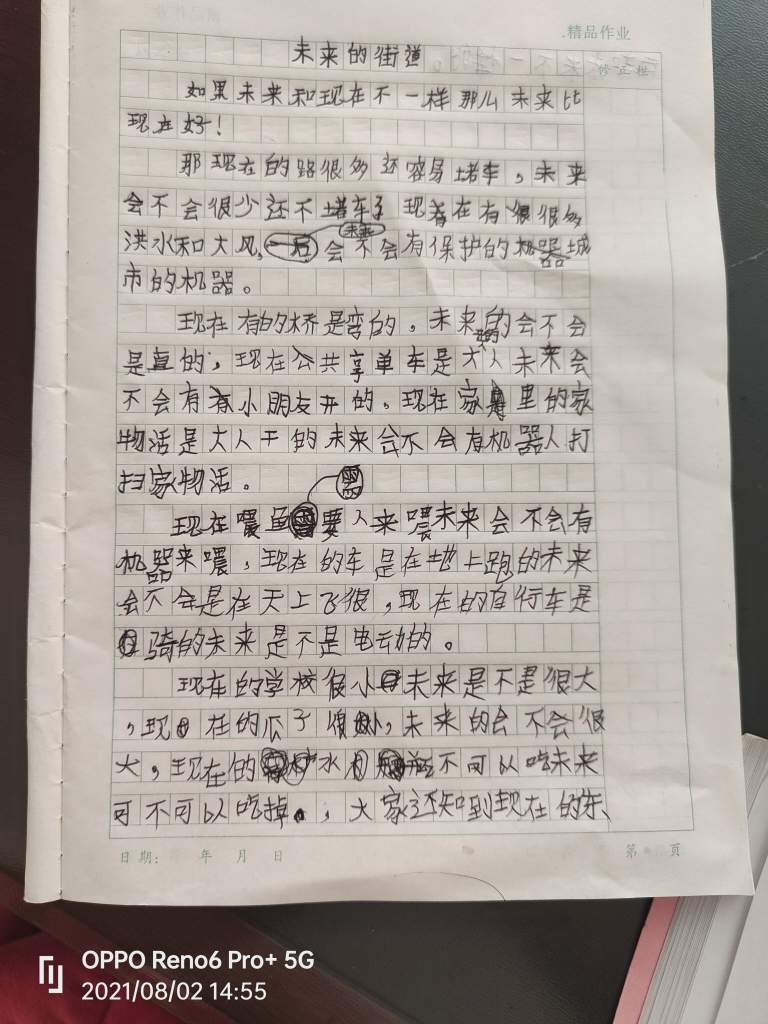 .精品作业
修正栏
未来的街道
如果未来和现在不一样那么未来比
现在好！
那现在的路很多还容易堵车，未来
会不会很少还不堵车了 现在有很很多
未来
洪水和大风，一后会不会有保护的机器城
市的机器。
现在有的桥是弯的，未来的会不会
是直的，现在公共享单车是大人未来会
不会有小朋友开的，现在家里的家
物活是大人干的未来会不会有机器人打
扫家物活。
需
现在喂鱼要人来喂未来会不会有
机器来喂，现在的车是在地上跑的未来
会不会是在天上飞很，现在的自行车是
骑的未来是不是电动的。
现在的学校很小未来是不是很大
，现在的瓜子很小，未来的会不会很
大，现在的水瓶不可以吃未来
可不可以吃掉，大家还知到现在的东、
日期： 年 月 日
第 页
OPPO Reno6 Pro+ 5G
2021/08/02 14:55